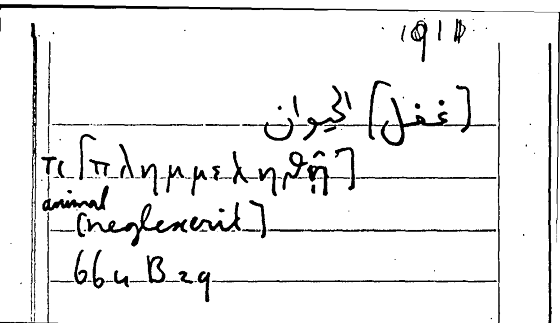 [غفل] الحيوان
π[πλημμεληθῇ]
animal
[neglexerit]
664 B 29